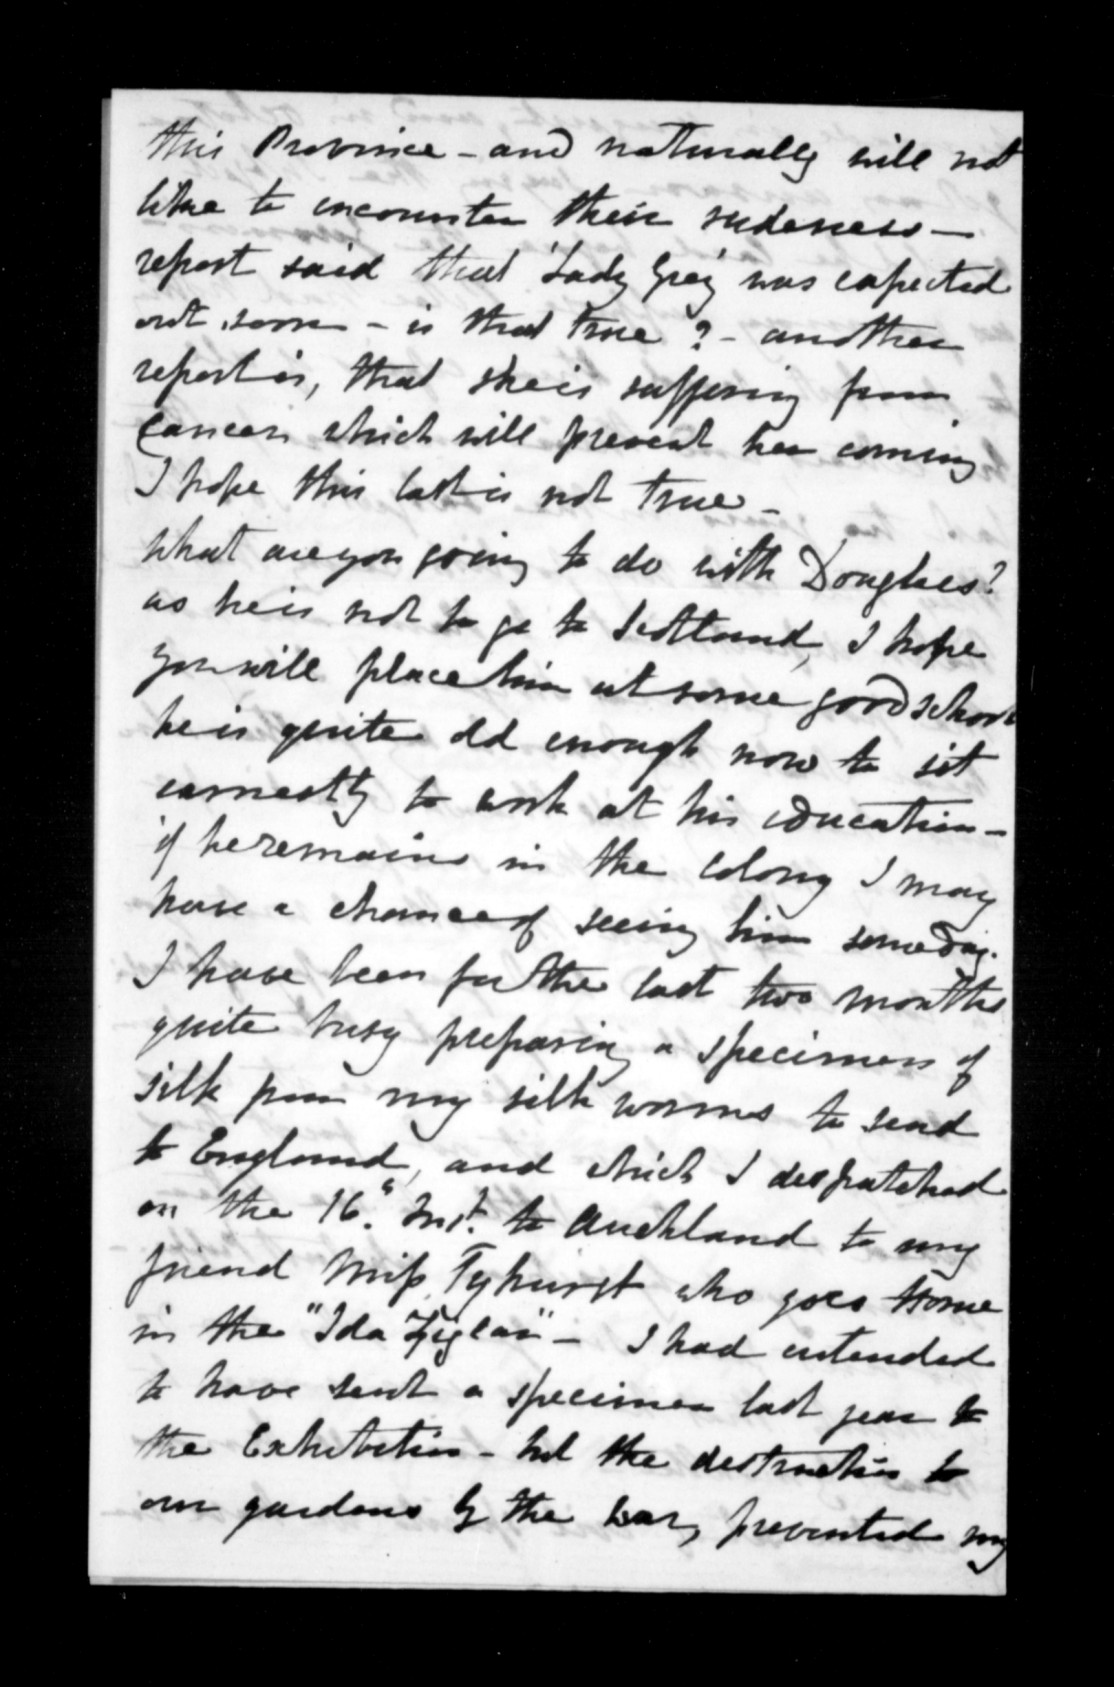 this Province - and naturally will not
like to encounter their rudeness -
report said that 'Lady Grey' was expected
out soon - is that true? - another
report is, that she is suffering from
Cancer which will prevent her coming
I hope this last is not true -
What are you going to do with Douglas?
as he is not to go to Scotland, I hope
you will place him at some good school
he is quite old enough now to set
earnestly to work at his education -
if he remains in the Colony I may
have a chance of seeing him someday.
I have been for the last two months
quite busy preparing a specimen of
silk from my silk worms to send
to England, and which I despatched
on the 16th Inst. to Auckland to my
friend Miss Tyhurst who goes Home
in the "Ida Zigler" - I had intended
to have sent a specimen last year to
the Exhibition - but the destruction to
our gardens by the war, prevented my